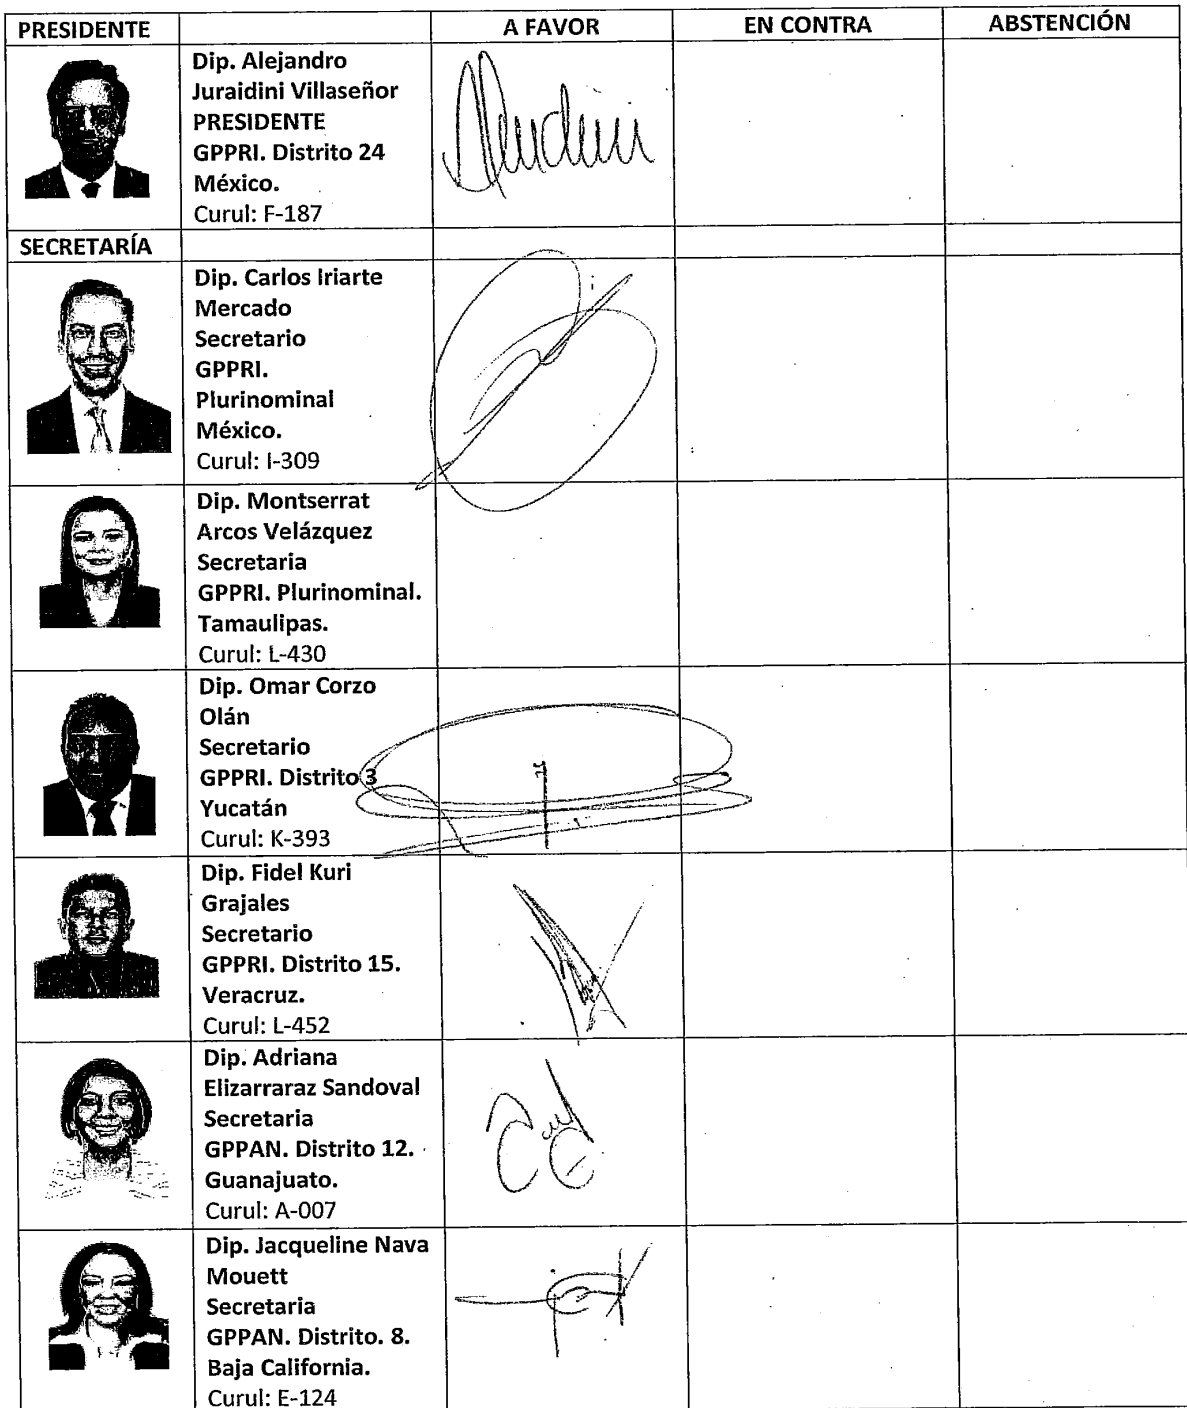 PRESIDENTE A FAVOR EN CONTRA ABSTENCIÓN
Dip. Alejandro
Juraidini Villaseñor
PRESIDENTE
GPPRI. Distrito 24
México.
Curul: F-187
SECRETARÍA
Dip. Carlos Iriarte
Mercado
Secretario
GPPRI.
Plurinominal
México.
Curul: I-309
Dip. Montserrat
Arcos Velázquez
Secretaria
GPPRI. Plurinominal.
Tamaulipas.
Curul: L-430
Dip. Omar Corzo
Olán
Secretario
GPPRI. Distrito 3
Yucatán
Curul: K-393
Dip. Fidel Kuri
Grajales
Secretario
GPPRI. Distrito 15.
Veracruz.
Curul: L-452
Dip. Adriana
Elizarraraz Sandoval
Secretaria
GPPAN. Distrito 12.
Guanajuato.
Curul: A-007
Dip. Jacqueline Nava
Mouett
Secretaria
GPPAN. Distrito. 8.
Baja California.
Curul: E-124